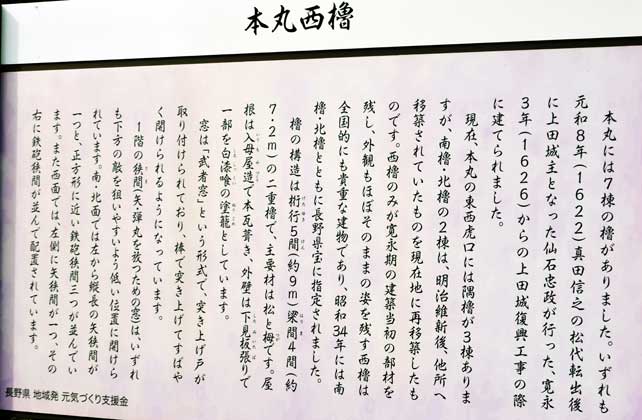 本丸西櫓
本丸には7棟の櫓がありました。いずれも
元和8年(1622)真田信之の松代転出後
に上田城主となった仙石忠政が行った、寛永
3年(1626)からの上田城復興工事の際
に建てられました。
現在、本丸の東西虎口には隅櫓が3棟ありま
すが、南櫓・北櫓の2棟は、明治維新後、他所へ
移築されていたものを現在地に再移築したも
のです。西櫓のみが寛永期の建築当初の部材を
残し、外観もほぼそのままの姿を残す西櫓は
全国的にも貴重な建物であり、昭和34年には南
櫓・北櫓とともに長野県宝に指定されました。
櫓の構造は桁行5間(約9m)梁間4間(約
7・2m)の二重櫓で、主要材は松と栂です。屋
根は入母屋造で本瓦葺き、外壁は下見板張りで
一部を白漆喰の塗籠としています。
窓は「武者窓」という形式で、突き上げ戸が
取り付けられており、棒で突き上げてすばや
く開けられるようになっています。
1階の狭間(矢・弾丸を放つための窓)は、いずれ
も下方の敵を狙いやすいよう低い位置に開けら
れています。南・北面では左から縦長の矢狭間が
一つと、正方形に近い鉄砲狭間三つが並んでい
ます。また西面では、左側に矢狭間が一つ、その
右に鉄砲狭間が並んで配置されています。
長野県 地域発 元気づくり支援金